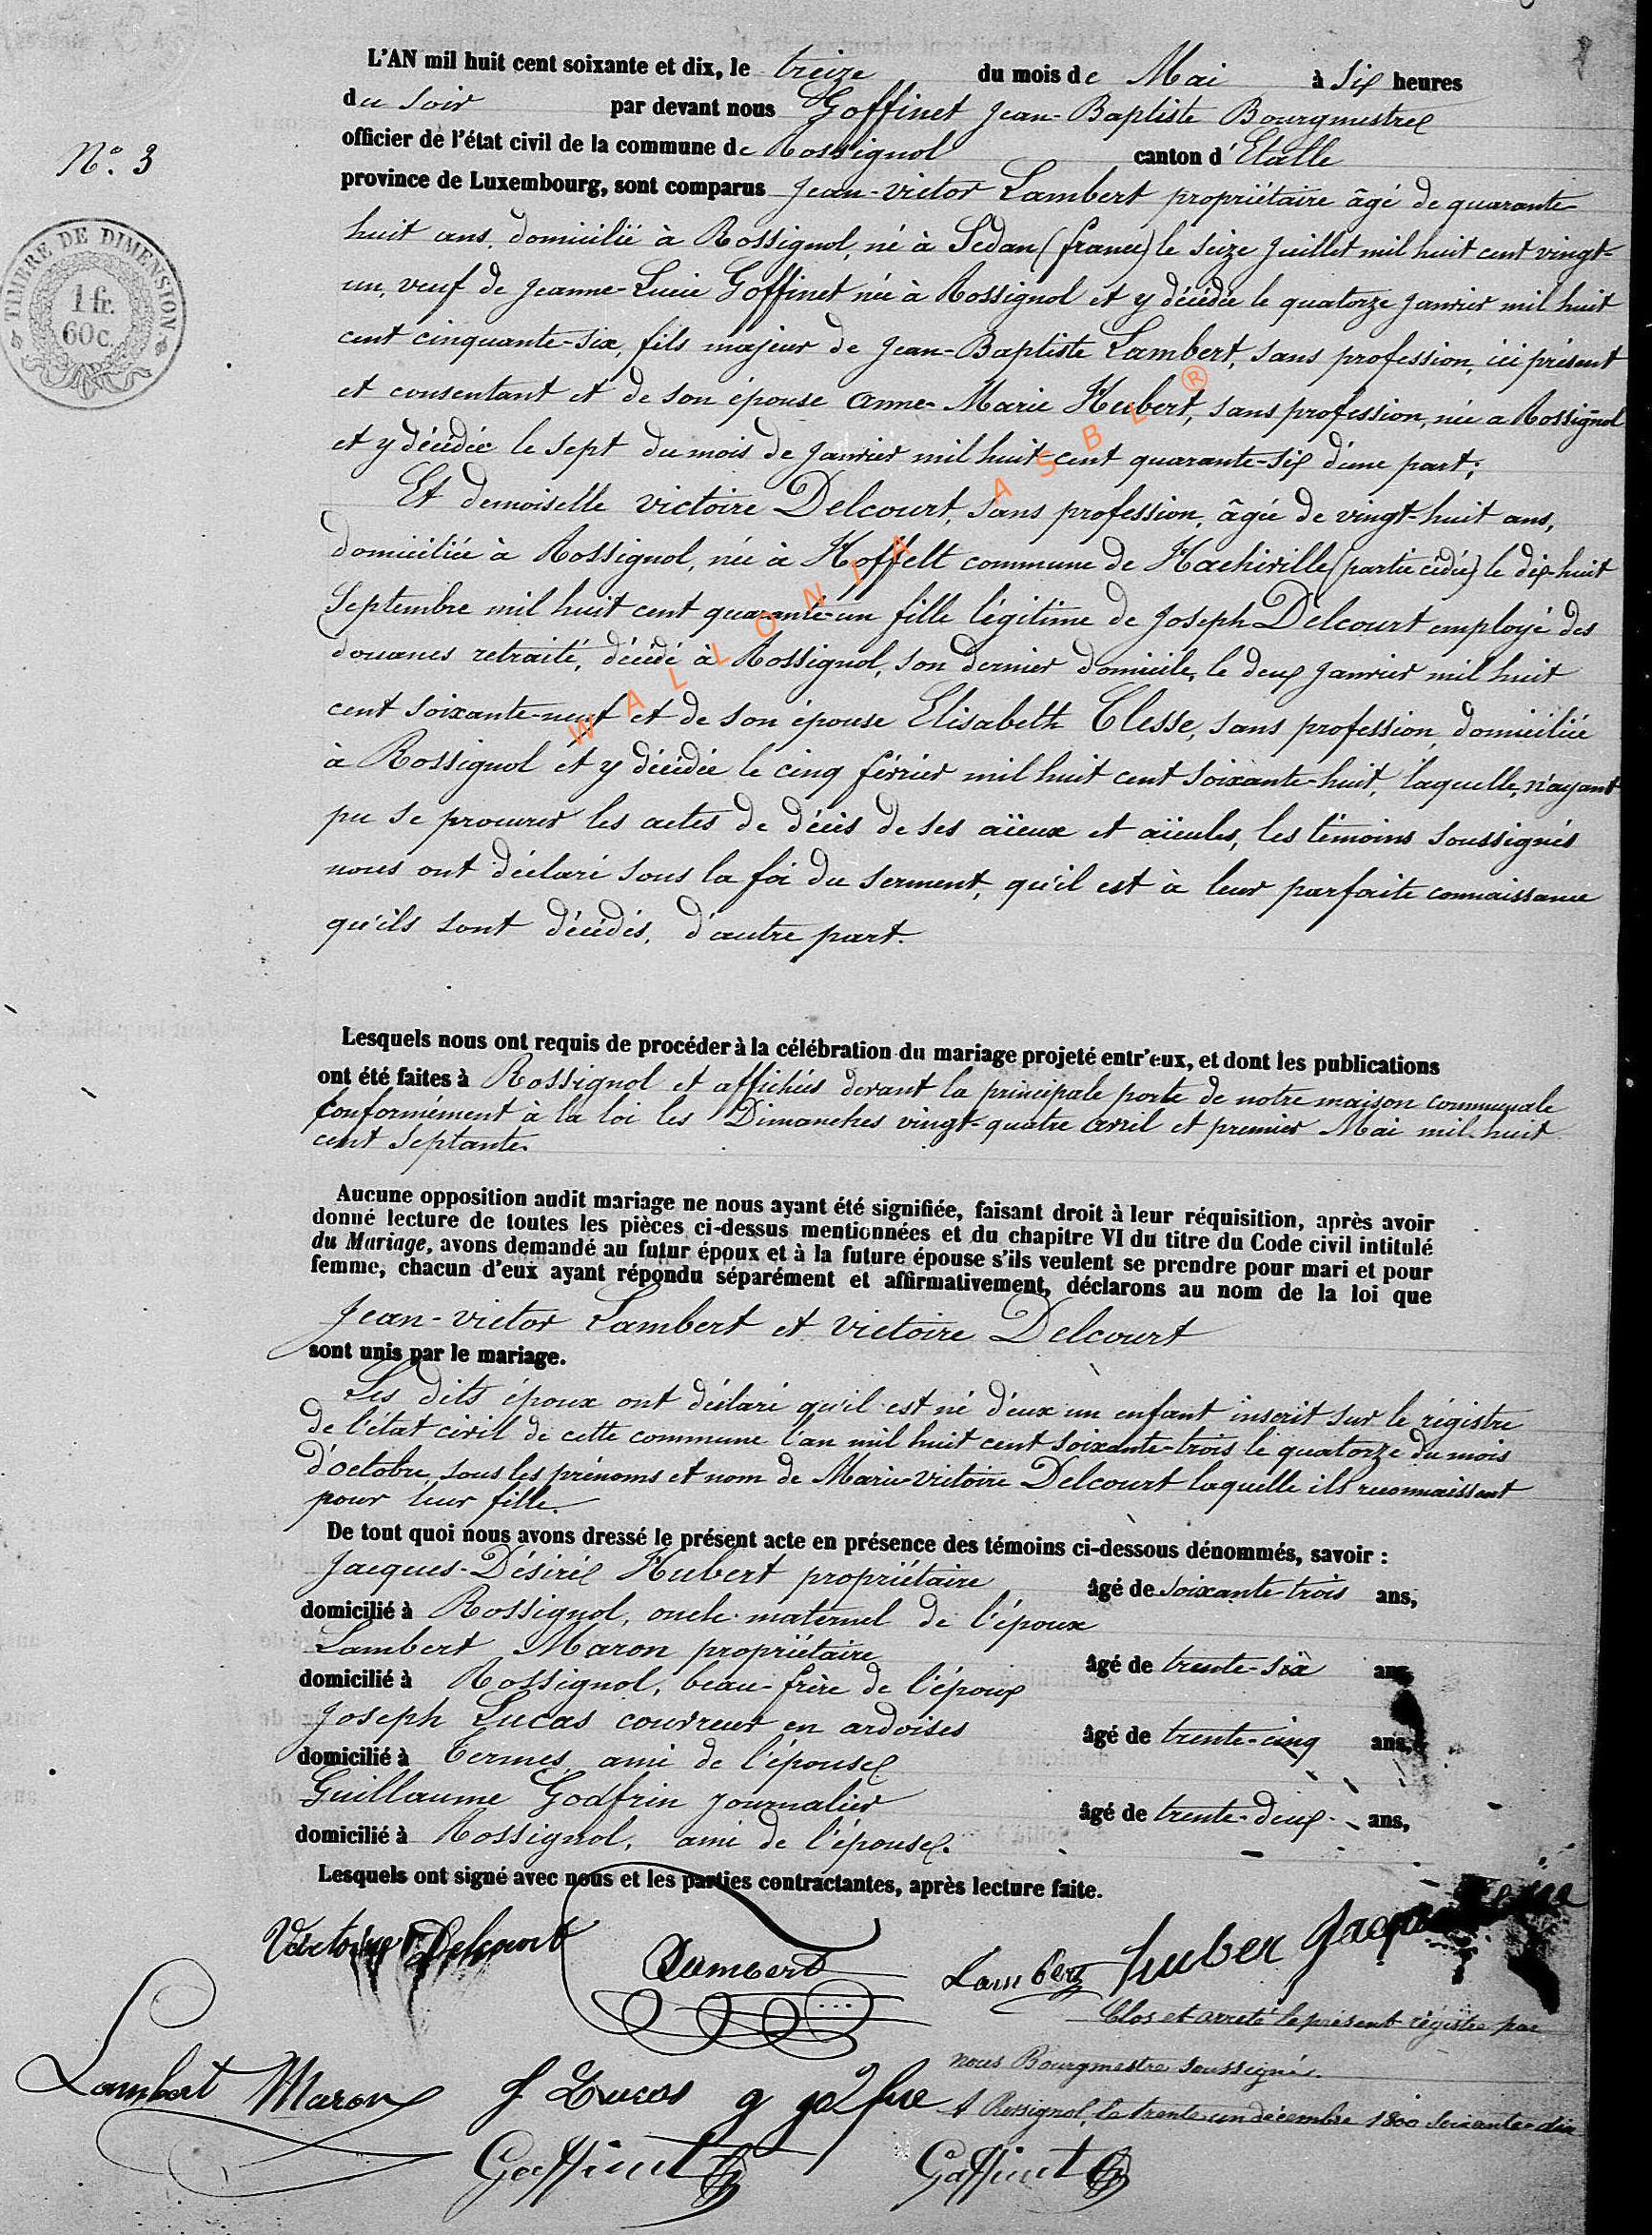 L'AN mil huit cent soixante et dix, le treize du mois de Mai à Six heures
du Soir par devant nous Goffinet Jean-Baptiste Bourgmestre
officier de l'état civil de la commune de Rossignol canton d'Etalle
N° 3
province de Luxembourg, sont comparus Jean-victor Lambert propriétaire âgé de quarante-
huit ans, domicilié à Rossignol, né à Sedan (france) le Seize Juillet mil huit cent vingt-
un, veuf de Jeanne-Lucie Goffinet née à Rossignol et y décédée le quatorze Janvier mil huit
cent cinquante-six, fils majeur de Jean-Baptiste Lambert, sans profession, ici présent
et consentant et de son épouse Anne-Marie Hubert, sans profession, née a Rossignol
et y décédée le sept du mois de Janvier mil huit-cent quarante-six d'une part;
Et demoiselle victoire Delcourt, sans profession, âgée de vingt-huit ans,
domiciliée à Rossignol, née à Hoffelt commune de Hachiville (partie cédée) le dix-huit
Septembre mil huit cent quarante-un fille légitime de Joseph Delcourt employé des
douanes retraité, décédé à Rossignol, son dernier domicile, le deux Janvier mil huit
cent soixante-neuf et de son épouse Elisabeth Clesse, sans profession, domiciliée
à Rossignol et y décédée le cinq février mil huit cent soixante-huit, laquelle, n'ayant
pu se procurer les actes de décès de ses aïeux et aïeules, les témoins soussignés
nous ont déclaré sous la foi du serment, qu'il est à leur parfaite connaissance
qu'ils sont décédés, d'autre part.
TIMBRE DE DIMENSION
1 fr.
60 c.
WALLONIA ASBL ®
Lesquels nous ont requis de procéder à la célébration du mariage projeté entr'eux, et dont les publications
ont été faites à Rossignol et affichées devant la principale porte de notre maison communale
Conformément à la loi les Dimanches vingt-quatre avril et premier Mai mil-huit
cent Septante.
Aucune opposition audit mariage ne nous ayant été signifiée, faisant droit à leur réquisition, après avoir
donné lecture de toutes les pièces ci-dessus mentionnées et du chapitre VI du titre du Code civil intitulé
du Mariage, avons demandé au futur époux et à la future épouse s'ils veulent se prendre pour mari et pour
femme, chacun d'eux ayant répondu séparément et affirmativement, déclarons au nom de la loi que
Jean-victor Lambert et Victoire Delcourt
sont unis par le mariage.
Les dits époux ont déclaré qu'il est né d'eux un enfant inscrit sur le régistre
de l'état civil de cette commune l'an mil huit cent soixante-trois le quatorze du mois
d'octobre, sous les prénoms et nom de Marie-Victoire Delcourt laquelle ils reconnaissent
pour leur fille.
De tout quoi nous avons dressé le présent acte en présence des témoins ci-dessous dénommés, savoir :
Jacques-Désiré Hubert propriétaire âgé de soixante-trois ans,
domicilié à Rossignol, oncle maternel de l'époux
Lambert Maron propriétaire âgé de trente-six ans,
domicilié à Rossignol, beau-frère de l'époux
Joseph Lucas couvreur en ardoises âgé de trente-cinq ans,
domicilié à Termes, ami de l'épouse
Guillaume Godfrin journalier âgé de trente-deux ans,
domicilié à Rossignol, ami de l'épouse.
Lesquels ont signé avec nous et les parties contractantes, après lecture faite.
Victoire Delcourt Lambert Lambert huber Jacques
Clos et arreté le présent régistre par
nous Bourgmestre soussigné.
Lambert Maron J Lucas
A Rossignol, le trente un décembre 1800 Soixante-dix
Goffinet Goffinet